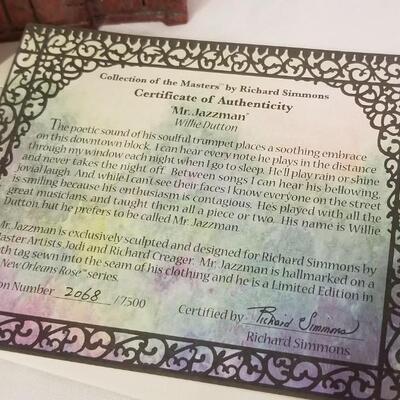 Collection of the Masters™ by Richard Simmons
Certificate of Authenticity
"Mr. Jazzman"
Willie Dutton
The poetic sound of his soulful trumpet places a soothing embrace
on this downtown block. I can hear every note he plays in the distance
through my window each night when I go to sleep. He'll play rain or shine
and never takes the night off. Between songs I can hear his bellowing,
jovial laugh. And while I can't see their faces I know everyone on the street
is smiling because his enthusiasm is contagious. He's played with all the
great musicians, and taught them all a piece or two. His name is Willie
Dutton but he prefers to be called Mr. Jazzman.
Mr. Jazzman is exclusively sculpted and designed for Richard Simmons by
Master Artists Jodi and Richard Creager. Mr. Jazzman is hallmarked on a
th tag sewn into the seam of his clothing and he is a Limited Edition in
"New Orleans Rose" series.
on Number 2068 /7500 Certified by Richard Simmons
Richard Simmons